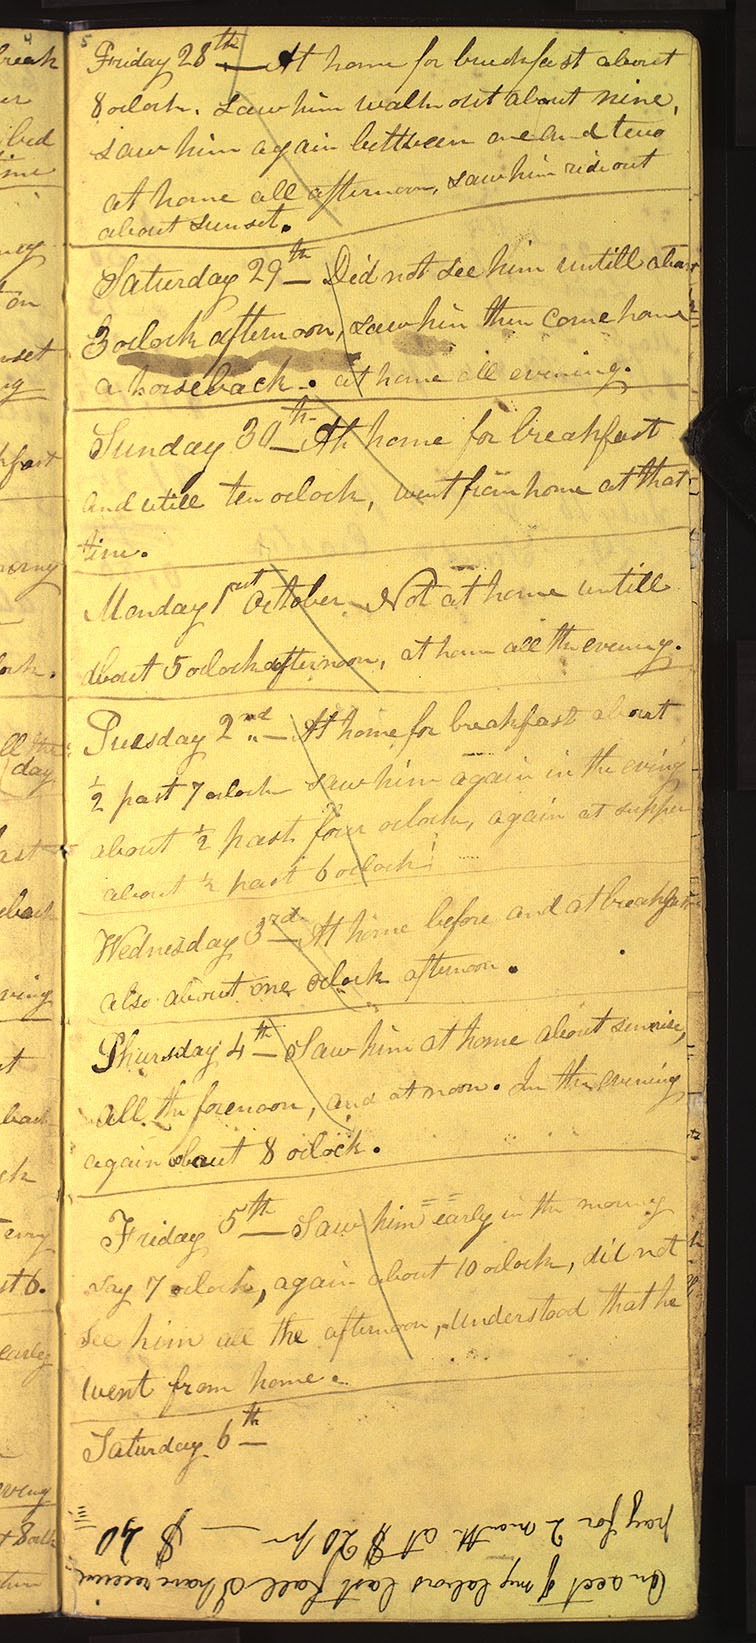 5
Friday 28th — At home for breakfast about
8 oclock. Saw him walk out about nine,
saw him again bettween one and two
at home all afternoon, saw him ride out
about sunset.
Saturday 29th — Did not see him untill about
3 oclock afternoon, saw him then come home
a horseback. at home all evening.
Sunday 30th — At home for breakfast
and utill ten oclock, went from home at that
time.
Monday 1st October. Not at home untill
about 5 oclock afternoon, at home all the evening.
Tuesday 2nd — At home for breakfast about
½ past 7 oclock saw him again in the eving
about ½ past four oclock, again at supper
about ½ past 6 oclock
Wednesday 3rd — At home before and at breakfast
also about one oclock afternoon.
Thursday 4th — Saw him at home about sunrise,
all the forenoon, and at noon. In the evening
again about 8 oclock.
Friday 5th — Saw him early in the morning
say 7 oclock, again about 10 oclock, did not
see him all the afternoon, understood that he
went from home.
Saturday 6th —
On acct of my labors last fall I have receive
pay for 2 month at $20 pr — $40